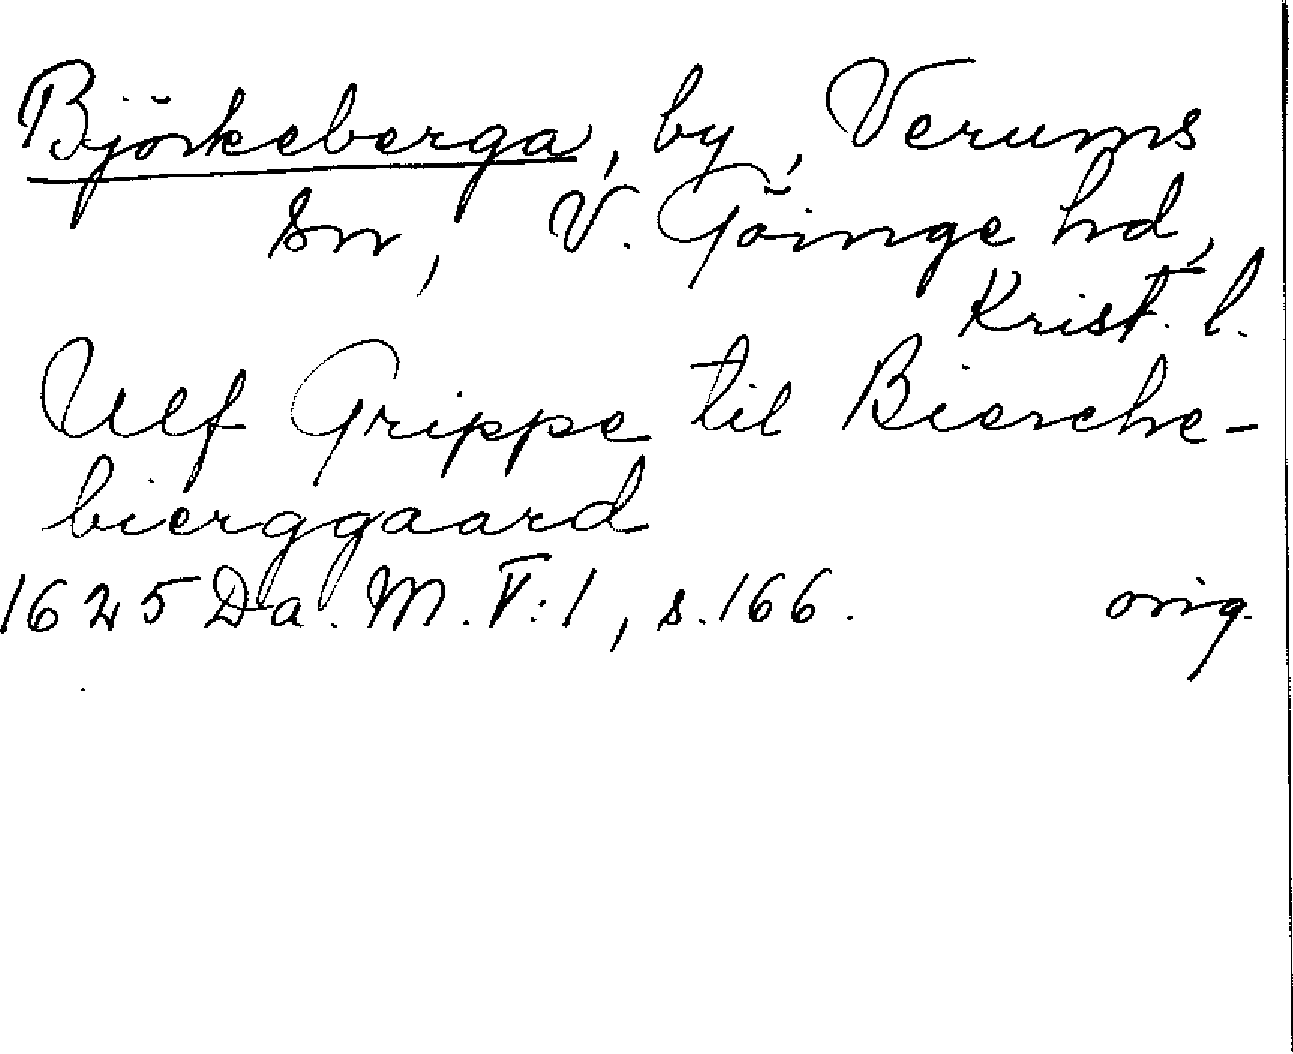 Björkeberga, by, Verums
sn, V. Göinge hd,
Krist. l.
Ulf Grippe til Bierche-
bierggaard
1625 Da. M. V:1, s. 166. orig.